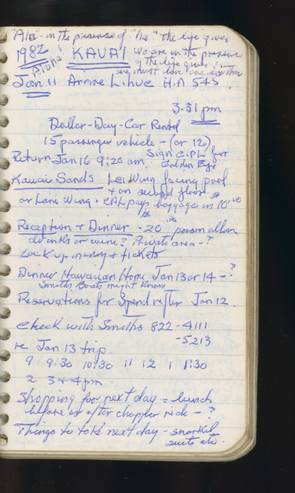 "Alo - in the presence of "ha" the life giver
1982 KAUAI We are in the presence
Aloha! of the life giver!
we must love one another
Jan 11 Arrive Lihue HA 545
3:31 pm
Dollar-Day-Car Rental
15 passenger vehicle - (or 12)
Sign CPL for
Return Jan 16 9:20 am
Kauai Sands Lei Wing facing pool
+ on second floor
or Lani Wing. CPL pays baggage in
Reception & Dinner - 20 person
drinks or wine? Private area - ?
Lock up money & tickets
Dinner Hawaiian Home Jan 13 or 14 - ?
Smiths Boats might know
Reservations for Jan 12
Check with Smiths 822-4111
-5213
re Jan 13 trip
9 9:30 10:30 11 12 1 1:30
2 3 & 4 pm
Shopping for next day = lunch
before or after chopper ride - ?
Things to take next day - snorkel
suits etc.